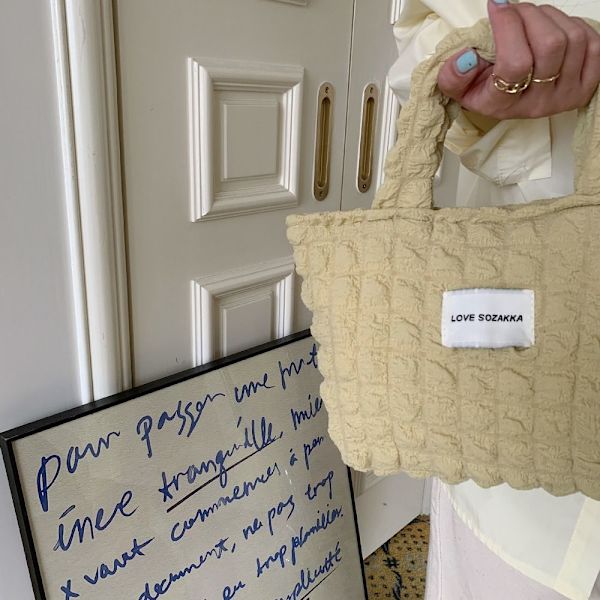 LOVE SOZAKKA
pour passer une
inee tranquille, mie
x vaut commencer à
document, ne pas trop
eu trop planifier.